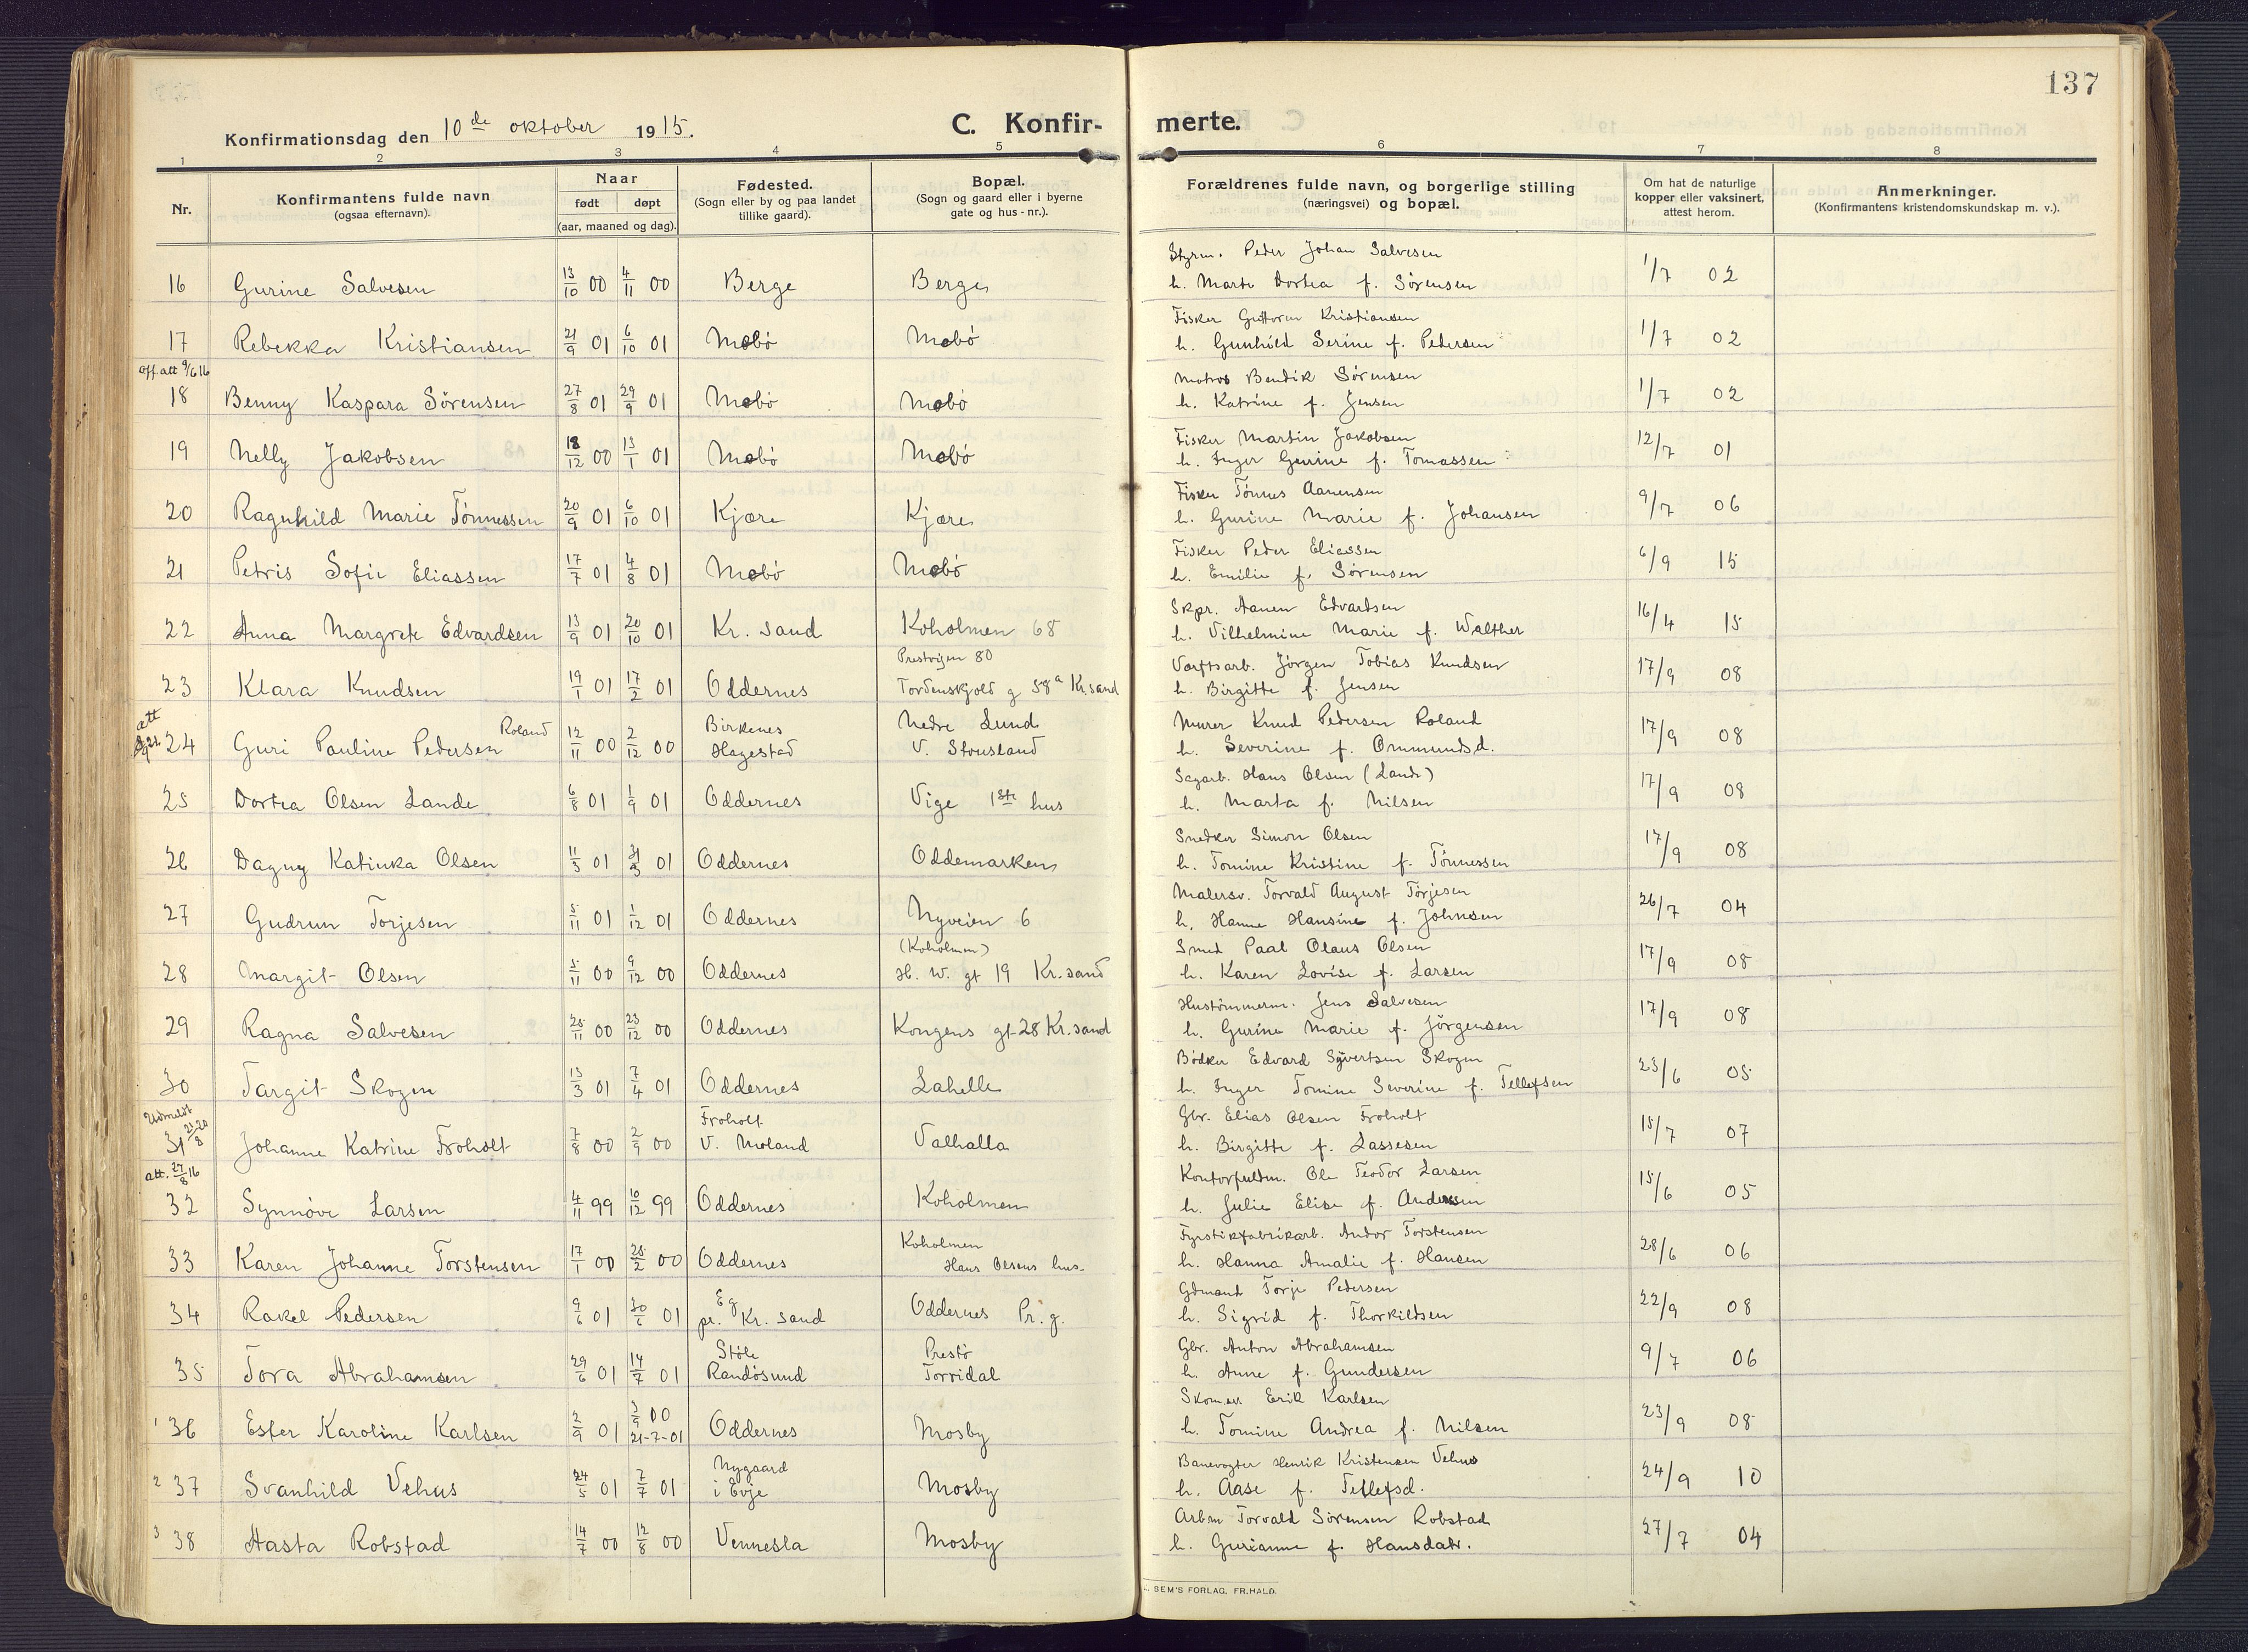 137
Konfirmationsdag den 10de oktober 1915.
C. Konfir- merte.
1 2 3 4 5 6 7 8
Nr.
Konfirmantens fulde navn
(ogsaa efternavn).
Naar
født døpt
(aar, maaned og dag).
Fødested.
(Sogn eller by og paa landet
tillike gaard).
Bopæl.
(Sogn og gaard eller i byerne
gate og hus - nr.).
Forældrenes fulde navn, og borgerlige stilling
(næringsvei) og bopæl.
Om hat de naturlige
kopper eller vaksinert,
attest herom.
Anmerkninger.
(Konfirmantens kristendomskundskap m. v.).
Styrm. Peder Johan Salvesen
16 Gurine Salvesen 13/10 00 4/11 00 Berge Berge h. Marte Dortea f. Sørensen 1/7 02
Fisker Guttorm Kristiansen
17 Rebekka Kristiansen 21/9 01 6/10 01 Mebø Mebø h. Gunhild Serine f. Pedersen 1/7 02
off. att 9/6 16
Matros Bendik Sørensen
18 Benny Kaspara Sørensen 27/8 01 29/9 01 Mebø Mebø h. Katrine f. Jensen 1/7 02
Fisker Martin Jakobsen
19 Nelly Jakobsen 18/12 00 13/1 01 Mebø Mebø h. Inger Gurine f. Tomassen 12/7 01
Fisker Tønnes Aanensen
20 Ragnhild Marie Tønnessen 20/9 01 6/10 01 Kjære Kjære h. Gurine Marie f. Johansen 9/7 06
Fisker Peder Eliassen
21 Petris Sofie Eliassen 17/7 01 4/8 01 Mebø Mebø h. Emilie f. Sørensen 6/9 15
Skpr. Aanen Edvardsen
22 Anna Margrete Edvardsen 13/9 01 20/10 01 Kr. sand Koholmen 68 h. Vilhelmine Marie f. Walther 16/4 15
Prestvijen 80
Værftsarb. Jørgen Tobias Knudsen
23 Klara Knudsen 19/1 01 17/2 01 Oddernes Tordenskjold g 58a Kr.sand h. Birgitte f. Jensen 17/9 08
att
Roland Birkenes Nedre Lund Murer Knud Pedersen Roland
24 Guri Pauline Pedersen 12/11 00 2/12 00 Hagestad V. Strusland h. Severine f. Ommundsd. 17/9 08
Sagarb. Hans Olsen (Lande)
25 Dortea Olsen Lande 6/8 01 1/9 01 Oddernes Vige 1ste hus h. Marta f. Nilsen 17/9 08
Snedker Simon Olsen
26 Dagny Katinka Olsen 11/3 01 31/3 01 Oddernes Oddemarken h. Tomine Kristine f. Tønnessen 17/9 08
Malersv. Torvald August Torjesen
27 Gudrun Torjesen 5/11 01 1/12 01 Oddernes Nyveien 6 h. Hanne Hansine f. Johnsen 26/7 04
(Koholmen)
Smed Paal Olaus Olsen
28 Margit Olsen 5/11 00 9/12 00 Oddernes H. W. gt 19 Kr. sand h. Karen Lovise f. Larsen 17/9 08
Hustømmerm. Jens Salvesen
29 Ragna Salvesen 25/11 00 23/12 00 Oddernes Kongens gt 28 Kr. sand h. Gurine Marie f. Jörgensen 17/9 08
Bødker Edvard Syvertsen Skogen
30 Targit Skogen 13/3 01 7/4 01 Oddernes Lahelle h. Inger Tomine Severine f. Tellefsen 23/6 05
Udmeldt 21/8 20
Froholt Gbr. Elias Olsen Froholt
31 Johanne Katrine Froholt 7/8 00 2/9 00 V. Moland Valhalla h. Birgitte f. Lassesen 15/7 07
att. 27/8 16
Kontorfuldm. Ole Teodor Larsen
32 Synnøve Larsen 4/11 99 10/12 99 Oddernes Koholmen h. Julie Elise f. Andersen 15/6 05
Koholmen Fyrstikfabrikarb. Andor Torstensen
33 Karen Johanne Torstensen 17/1 00 25/2 00 Oddernes Hans Olsens hus. h. Hanna Amalie f. Hansen 28/6 06
Eg Gdmand Torje Pedersen
34 Rakel Pedersen 9/6 01 30/6 01 pr. Kr. sand Oddernes Pr. g. h. Sigrid f. Thorkildsen 22/9 08
Støle Prestø Gbr. Anton Abrahamsen
35 Tora Abrahamsen 29/6 01 14/7 01 Randøsund Torridal h. Anne f. Gundersen 9/7 06
Skom.sv Erik Karlsen
1 36 Ester Karoline Karlsen 2/9 01 3/9 00 21-7-01 Oddernes Mosby h. Tomine Andrea f. Nilsen 23/9 08
Nygaard Banevogter Henrik Kristensen Vehus
2 37 Svanhild Vehus 24/5 01 7/7 01 i Evje Mosby h. Aase f. Tellefsd. 24/9 10
Arbm Torvald Sørensen Robstad
3 38 Hasta Robstad 14/7 00 12/8 00 Vennesla Mosby h. Gurianne f. Hansdatr. 27/7 04
SEM'S FORLAG, FR.HALD.